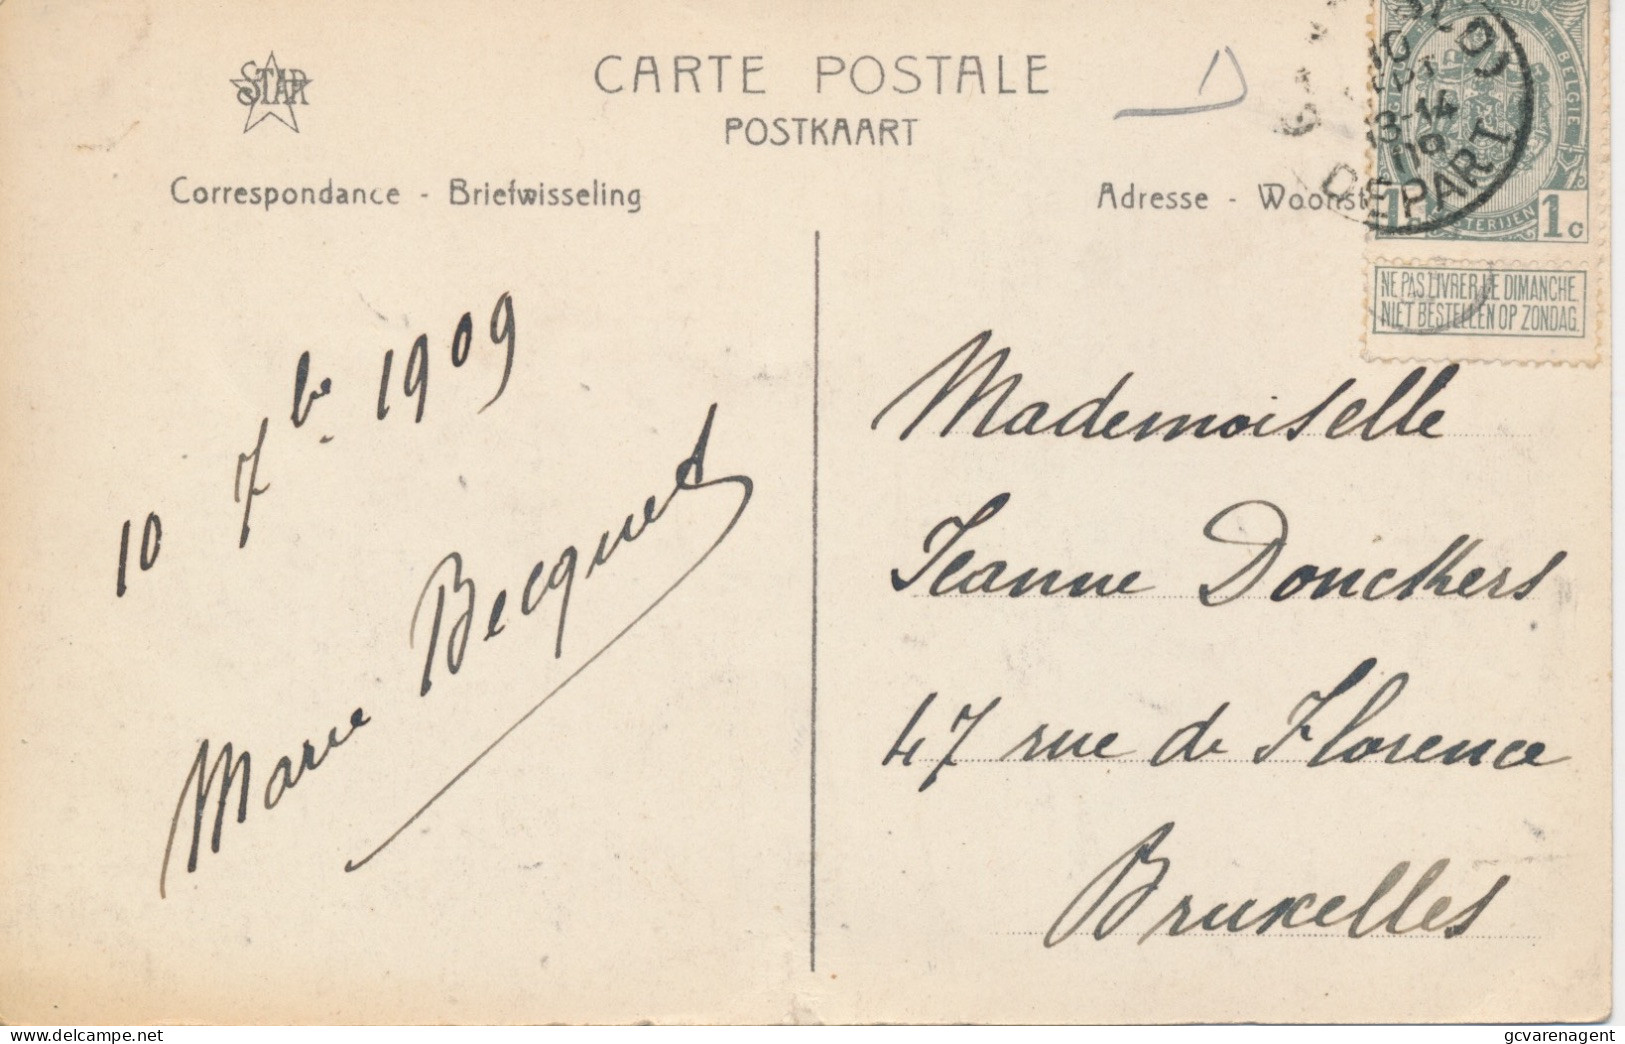 STAR
CARTE POSTALE
POSTKAART
Correspondance - Briefwisseling
Adresse -
10
13-14
DEPART
BELGIE
1c
NE PAS LIVRER LE DIMANCHE
NIET BESTELLEN OP ZONDAG
10 7bre 1909
Marie Becquet
Mademoiselle
Jeanne Donckers
47 rue de Florence
Bruxelles
delcampe.net
gcvarenagent